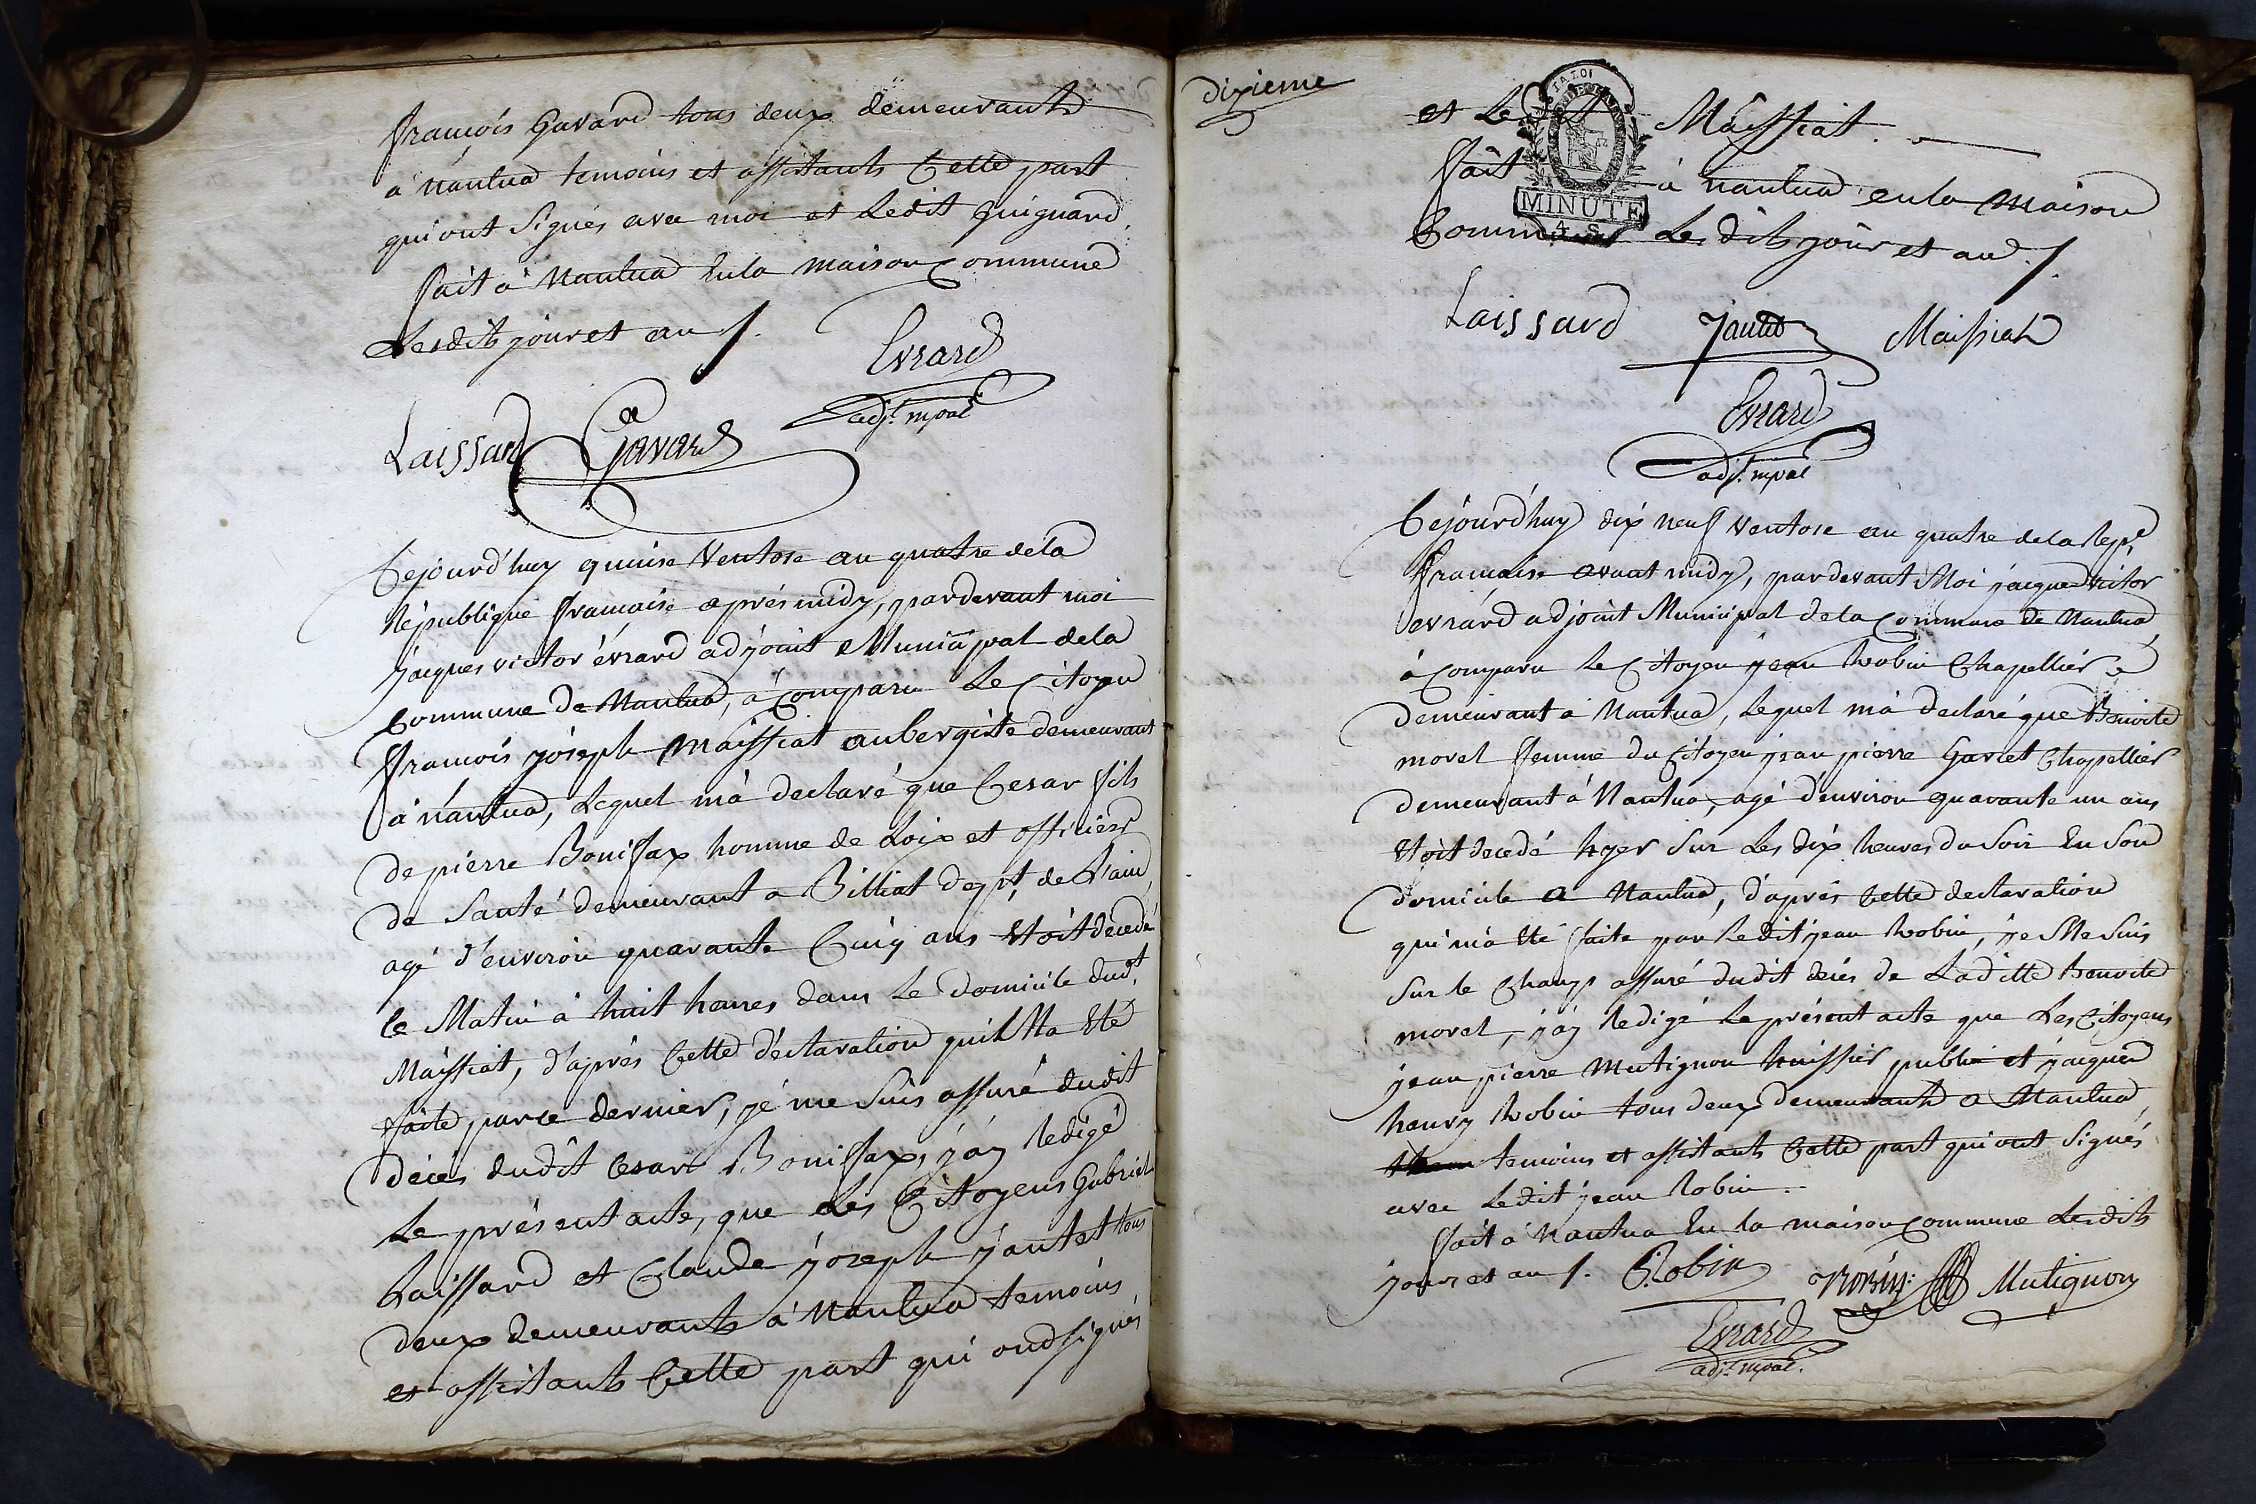 françois Gavard tous deux demeurants
à Nantua temoins et assistants Cette part
qui ont Signés avec moi et Ledit Guignard
fait à Nantua En la maison Commune
Lesdits jour et an /.
Evrard
adjt. mpal
Laissard Gavard
Cejourd'huy quinse Ventose an quatre de la
République francaise après midy, pardevant moi
Jacques victor évrard adjoint Municipal de la
Commune de Nantua, à Comparu Le Citoyen
françois joseph Maissiat aubergiste demeurant
à Nantua, Lequel m'à declaré que Cesar fils
de pierre Boniffax homme de Loix et officier
de Santé demeurant a Billiat dept. de L'ain
agé d'environ quarante Cinq ans Etoit decedé
le Matin à huit heures dans Le domicile dudt.
Maissiat, d'après Cette déclaration qu'il Ma Eté
faite par ce dernier, je me Suis assuré dudit
décés dudit Cesar Boniffax, j'ay Redigé
Le présent acte, que Les Citoyens Gabriel
Laissard et Claude joseph jantet tous
deux demeurants à Nantua temoins
et assistants Cette part qui ond signés
dixieme
et Ledit Maissiat.
fait à Nantua en la Maison
MINUTE
4. S.
Commune Les dits jour et an /.
Laissard Jantet Maissiat
Evrard
adjt. mpal
Cejourd'huy dix neuf Ventose an quatre de la Repe
francaise avant midy, pardevant Moi jacques victor
evrard adjoint Municipal de la Commune de Nantua
à Comparu Le Citoyen jean Robin Chapellier
demeurant à Nantua, Lequel m'à declaré que Benoite
morel femme du Citoyen jean pierre Gavet Chapellier
demeurant à Nantua, agé d'environ quarante un ans
Etoit decedé hyer Sur Les dix heures du Soir En Son
domicile a Nantua, d'après Cette declaration
qui m'à Eté faite par Le dit jean Robin, je Me Suis
Sur le Champ assuré dudit décés de Laditte Benoite
morel, j'ay Redigé Le présent acte que Les Citoyens
jean pierre Mutignon huissier public et jacques
henry Robin tous deux demeurants a Nantua
temoins et assistants Cette part qui ont Signés
avec Ledit jean Robin.
fait à Nantua En la maison Commune Lesdits
jour et an /. Robin ROBIN Mutignon
Evrard
adjt. mpal.